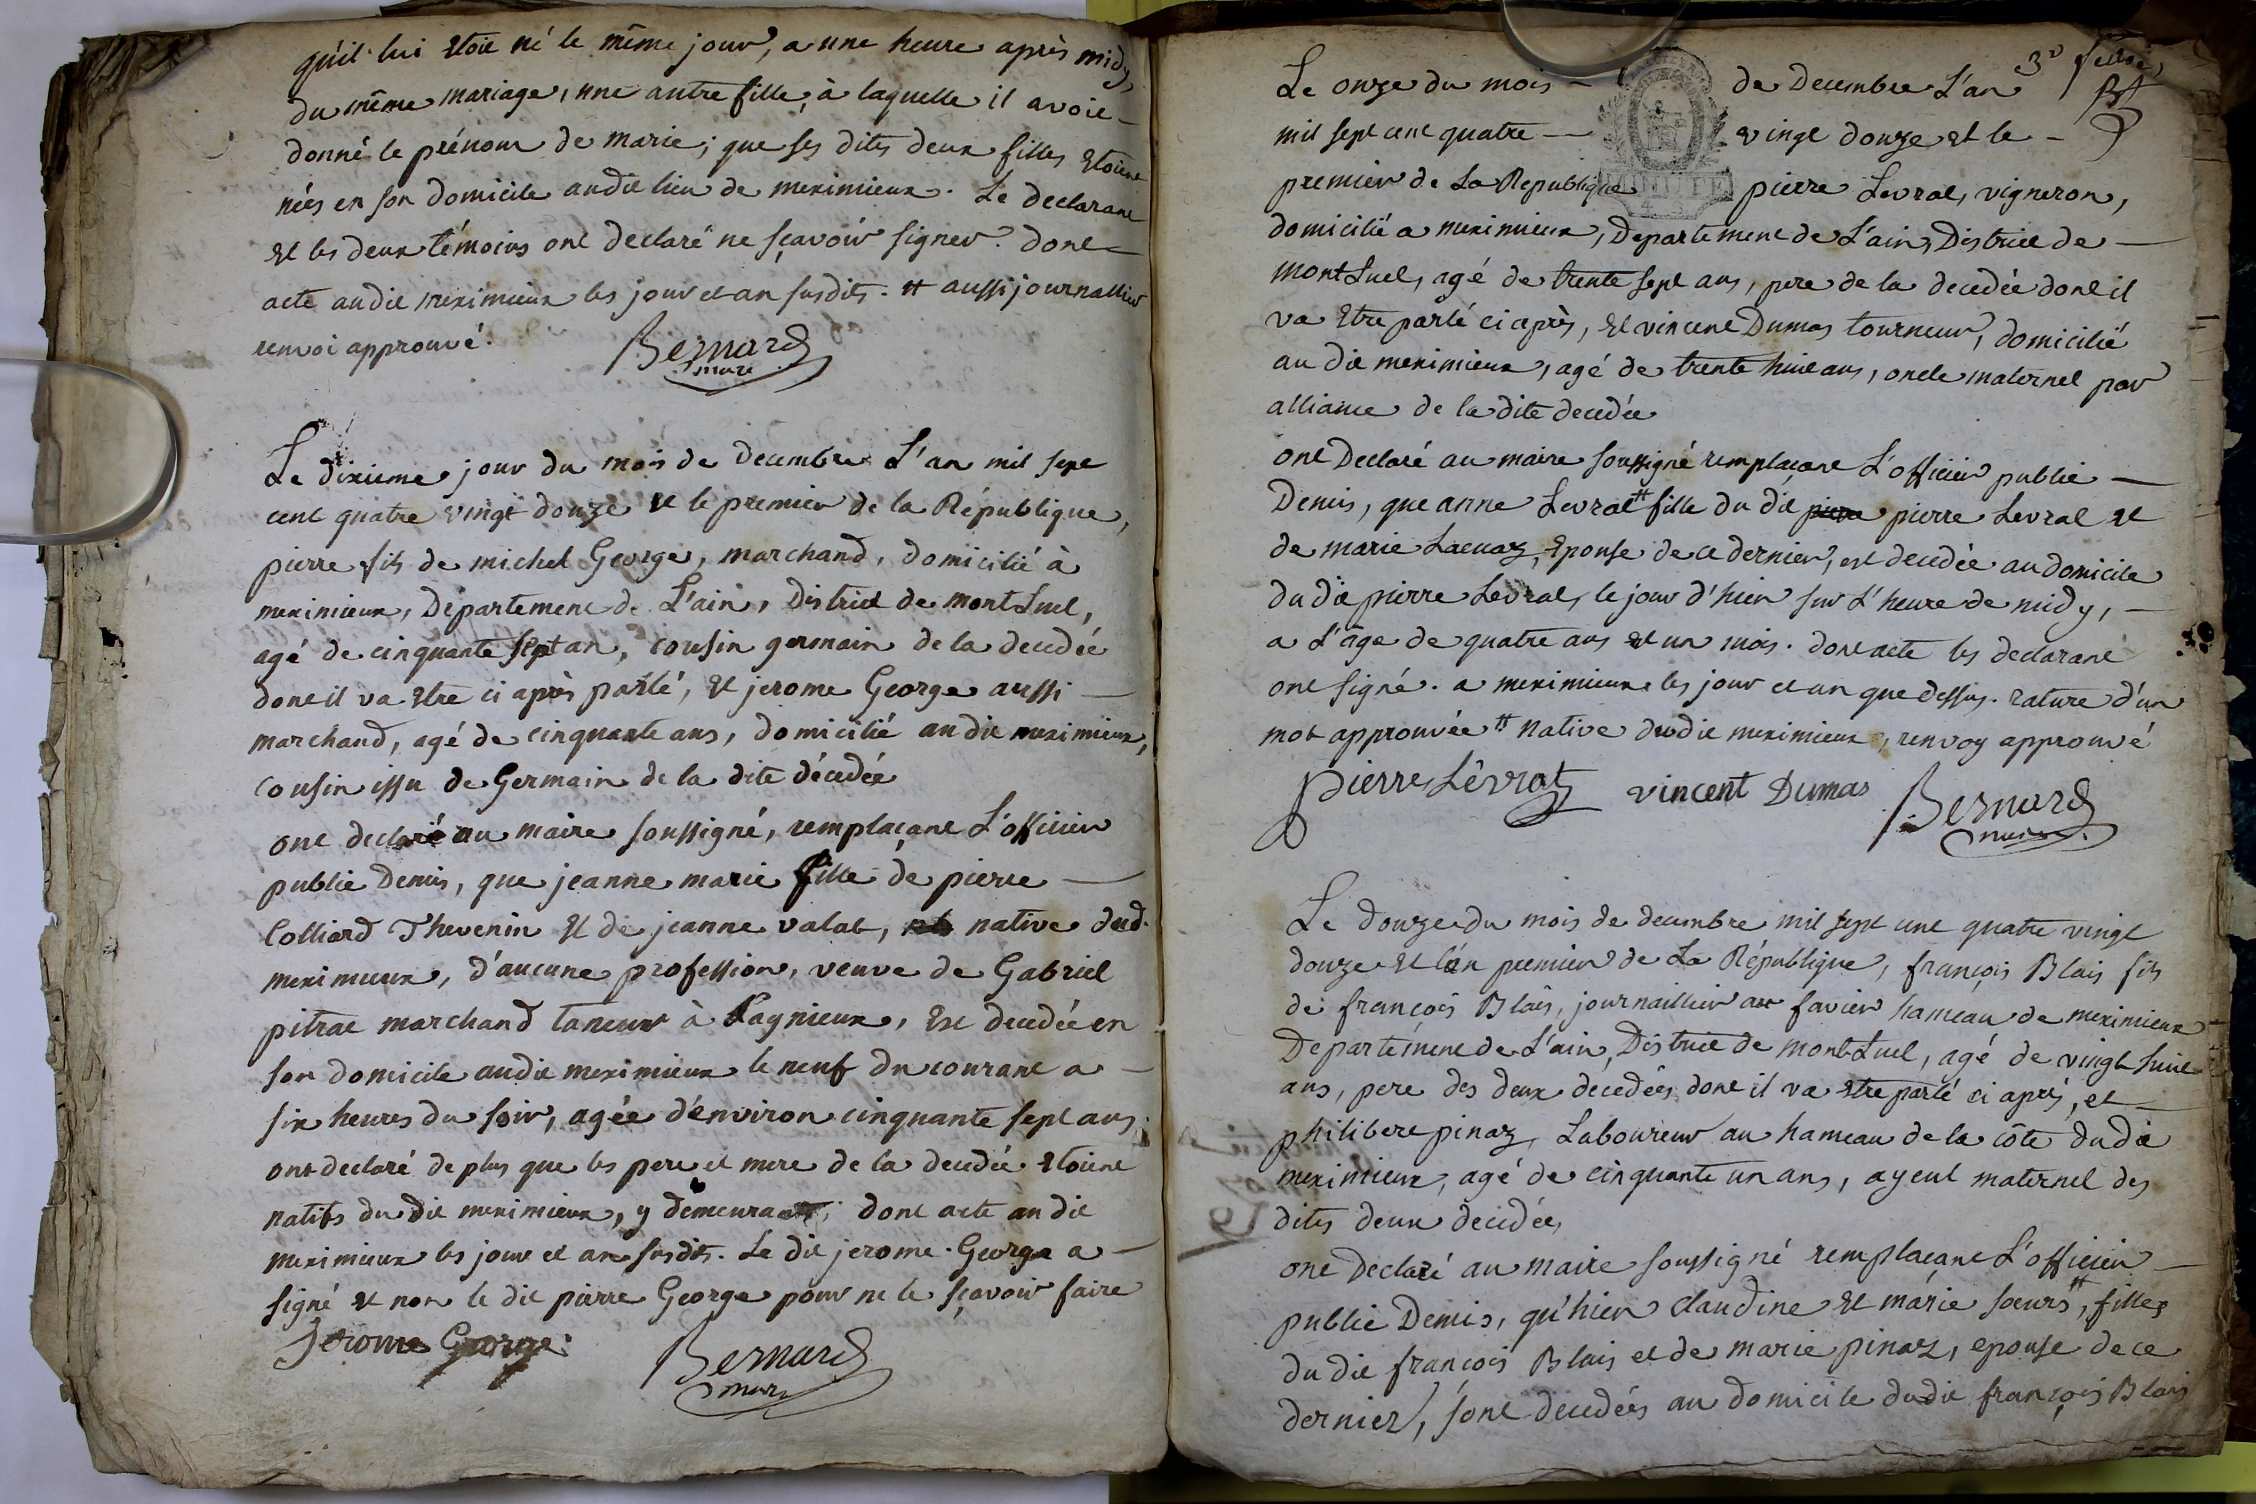 qu'il lui Etoit né le même jour, a une heure après midy,
du même mariage, une autre fille, à laquelle il avoit
donné le prénom de marie; que ses dites deux filles Etoient
nées en son domicile audit lieu de meximieux. Le declarant
Et les deux témoins ont declaré ne sçavoir signer. dont
acte audit meximieux les jour et an susdits. # aussi journallier
renvoi approuvé.
Bernard
maire
Le dixieme jour du mois de decembre L'an mil sept
cent quatre vingt douze et le premier de la République,
pierre fils de michel George, marchand, domicilié à
meximieux, Departement de L'ain, District de montLuel,
agé de cinquante sept an, cousin germain de la decedée
dont il va Etre ci après parlé, Et jerome George aussi
marchand, agé de cinquante ans, domicilié audit meximieux,
cousin issu de Germain de la dite décedée
ont declaré au maire soussigné, remplaçant L'officier
public Denis, que jeanne marie fille de pierre
Colliard Thevenin Et de jeanne valat, native dud.
meximieux, d'aucune profession, veuve de Gabriel
pitrat marchand taneur à Lagnieux, Est decedée en
son domicile audit meximieux le neuf du courant a
six heures du soir, agée d'environ cinquante sept ans,
ont declaré de plus que les pere et mere de la decedée Etoient
natifs du dit meximieux, y demeurant; dont acte audit
meximieux les jour et an susdits. Le dit jerome George a
signé et non le dit pierre George pour ne le sçavoir faire
Jérome George
Bernard
maire
3e feuillet
Le onze du mois de decembre L'an
mil sept cent quatre vingt douze et le
premier de La Republique pierre Levrat, vigneron,
domicilié a meximieux, Departement de L'ain, District de
montLuel, agé de trente sept ans, pere de la decedée dont il
va Etre parlé ci après, Et vincent Dumas tourneur, domicilié
au dit meximieux, agé de trente huit ans, oncle maternel par
alliance de la dite decedée
ont Declaré au maire soussigné remplacant L'officier public
Denis, que anne Levrat # fille du dit pierre pierre Levrat et
de marie Lacuaz, Epouse de ce dernier, est decedée au domicile
du dit pierre Levrat, le jour d'hier sur L'heure de midy,
a L'âge de quatre ans et un mois. dont acte les declarant
ont signé. a meximieux les jour et an que dessus. rature d'un
mot approuvée # native dudit meximieux, renvoy approuvé
pierre Lêvrat vincent Dumas Bernard
maire
Le douze du mois de decembre mil sept cent quatre vingt
douze et l'an premier de La République, françois Blais fils
de françois Blais, journaillier au favier hameau de meximieux
Departement de L'ain, District de montLuel, agé de vingt huit
ans, pere des deux décedées dont il va Etre parlé ci après, et
philibert pinaz, Laboureur au hameau de la côte dudit
meximieux, agé de cinquante un ans, ayeul maternel des
dites deux decedées
ont Declaré au maire soussigné remplacant L'officier
public Denis, qu'hier claudine Et márie soeurs #, filles
du dit françois Blais et de marie pinaz, epouse de ce
dernier, sont decedées au domicile dudit françois Blais